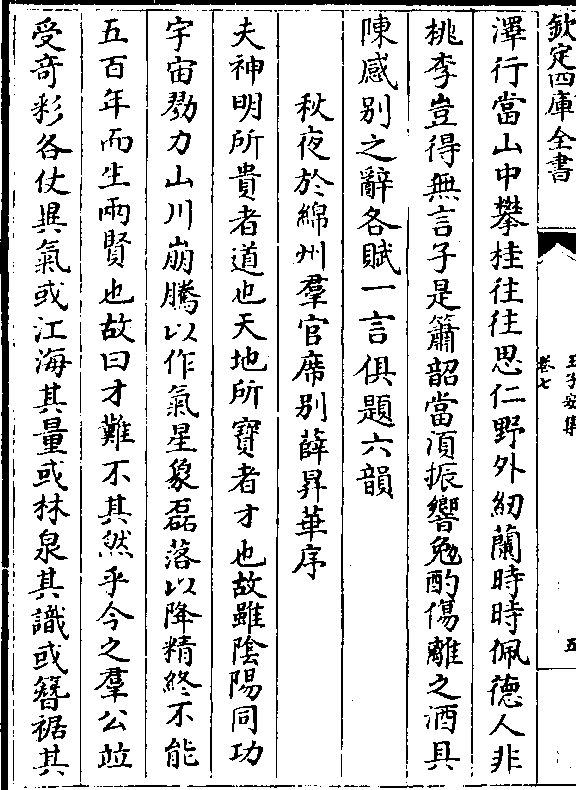 欽定四庫全書
王子安集
卷七
五
澤行當山中攀桂往往思仁野外紉蘭時時佩德人非
桃李豈得無言子是簫韶當須振響勉酌傷離之酒具
陳感别之辭各賦一言俱題六韻
秋夜於綿州羣官席别薛昇華序
夫神明所貴者道也天地所寶者才也故雖陰陽同功
宇宙勠力山川崩騰以作氣星象磊落以降精終不能
五百年而生兩賢也故曰才難不其然乎今之羣公竝
受奇彩各仗異氣或江海其量或林泉其識或簪裾其